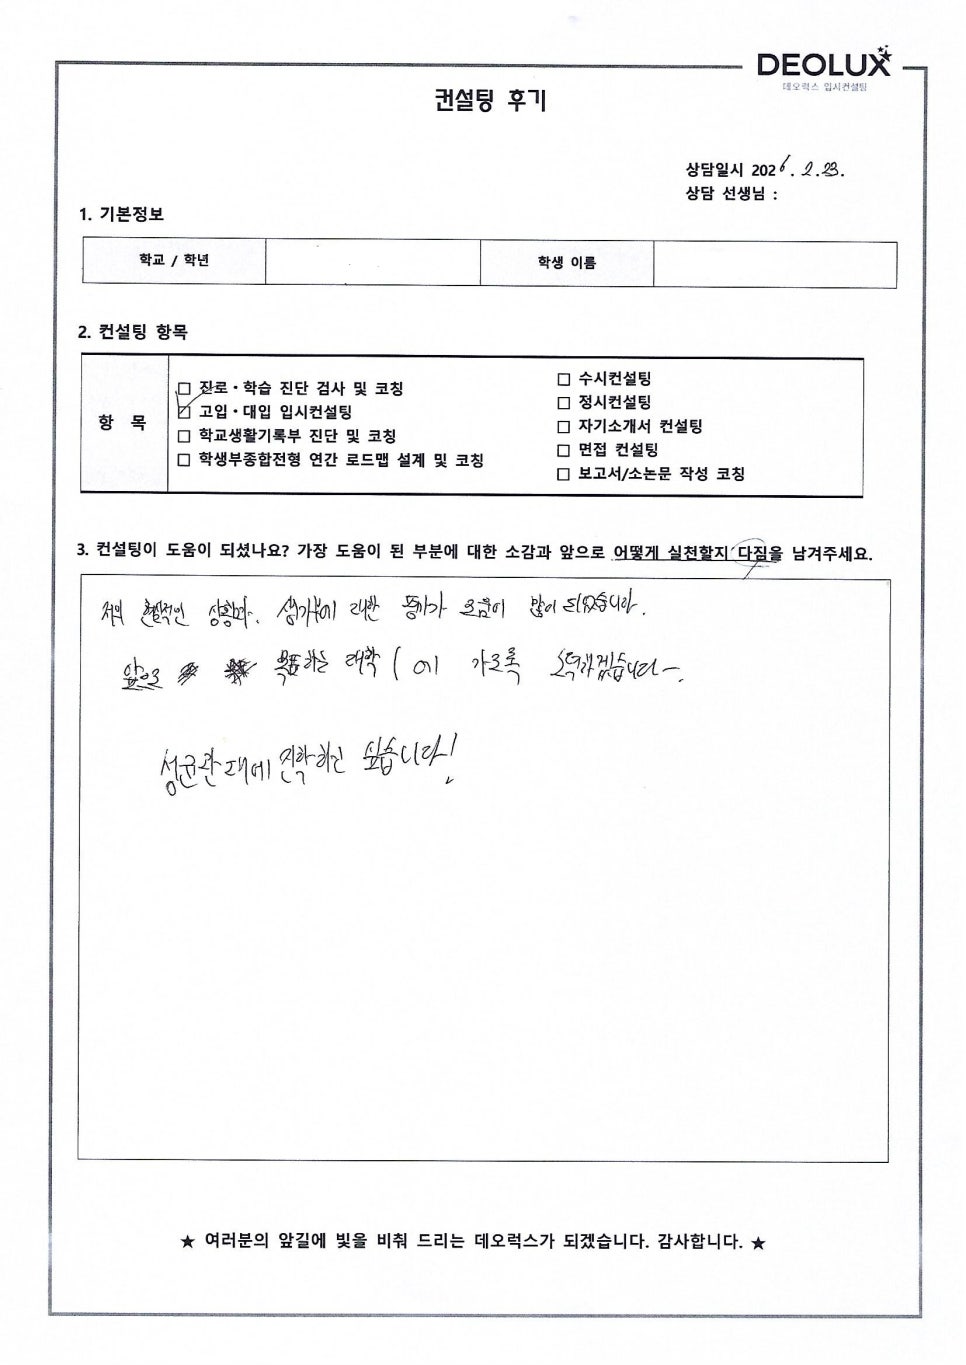 DEOLUX
데오럭스 입시컨설팅
컨설팅 후기
상담일시 2026. 2. 23.
상담 선생님 :
1. 기본정보
학교 / 학년
학생 이름
2. 컨설팅 항목
항 목
□ 진로·학습 진단 검사 및 코칭
☑ 고입·대입 입시컨설팅
□ 학교생활기록부 진단 및 코칭
□ 학생부종합전형 연간 로드맵 설계 및 코칭
□ 수시컨설팅
□ 정시컨설팅
□ 자기소개서 컨설팅
□ 면접 컨설팅
□ 보고서/소논문 작성 코칭
3. 컨설팅이 도움이 되셨나요? 가장 도움이 된 부분에 대한 소감과 앞으로 어떻게 실천할지 다짐을 남겨주세요.
저의 현실적인 상황과. 생기부에 대한 평가가 도움이 많이 되었습니다.
앞으로 목표하는 대학에 가도록 노력하겠습니다.
성균관대에 진학하고 싶습니다!
★ 여러분의 앞길에 빛을 비춰 드리는 데오럭스가 되겠습니다. 감사합니다. ★